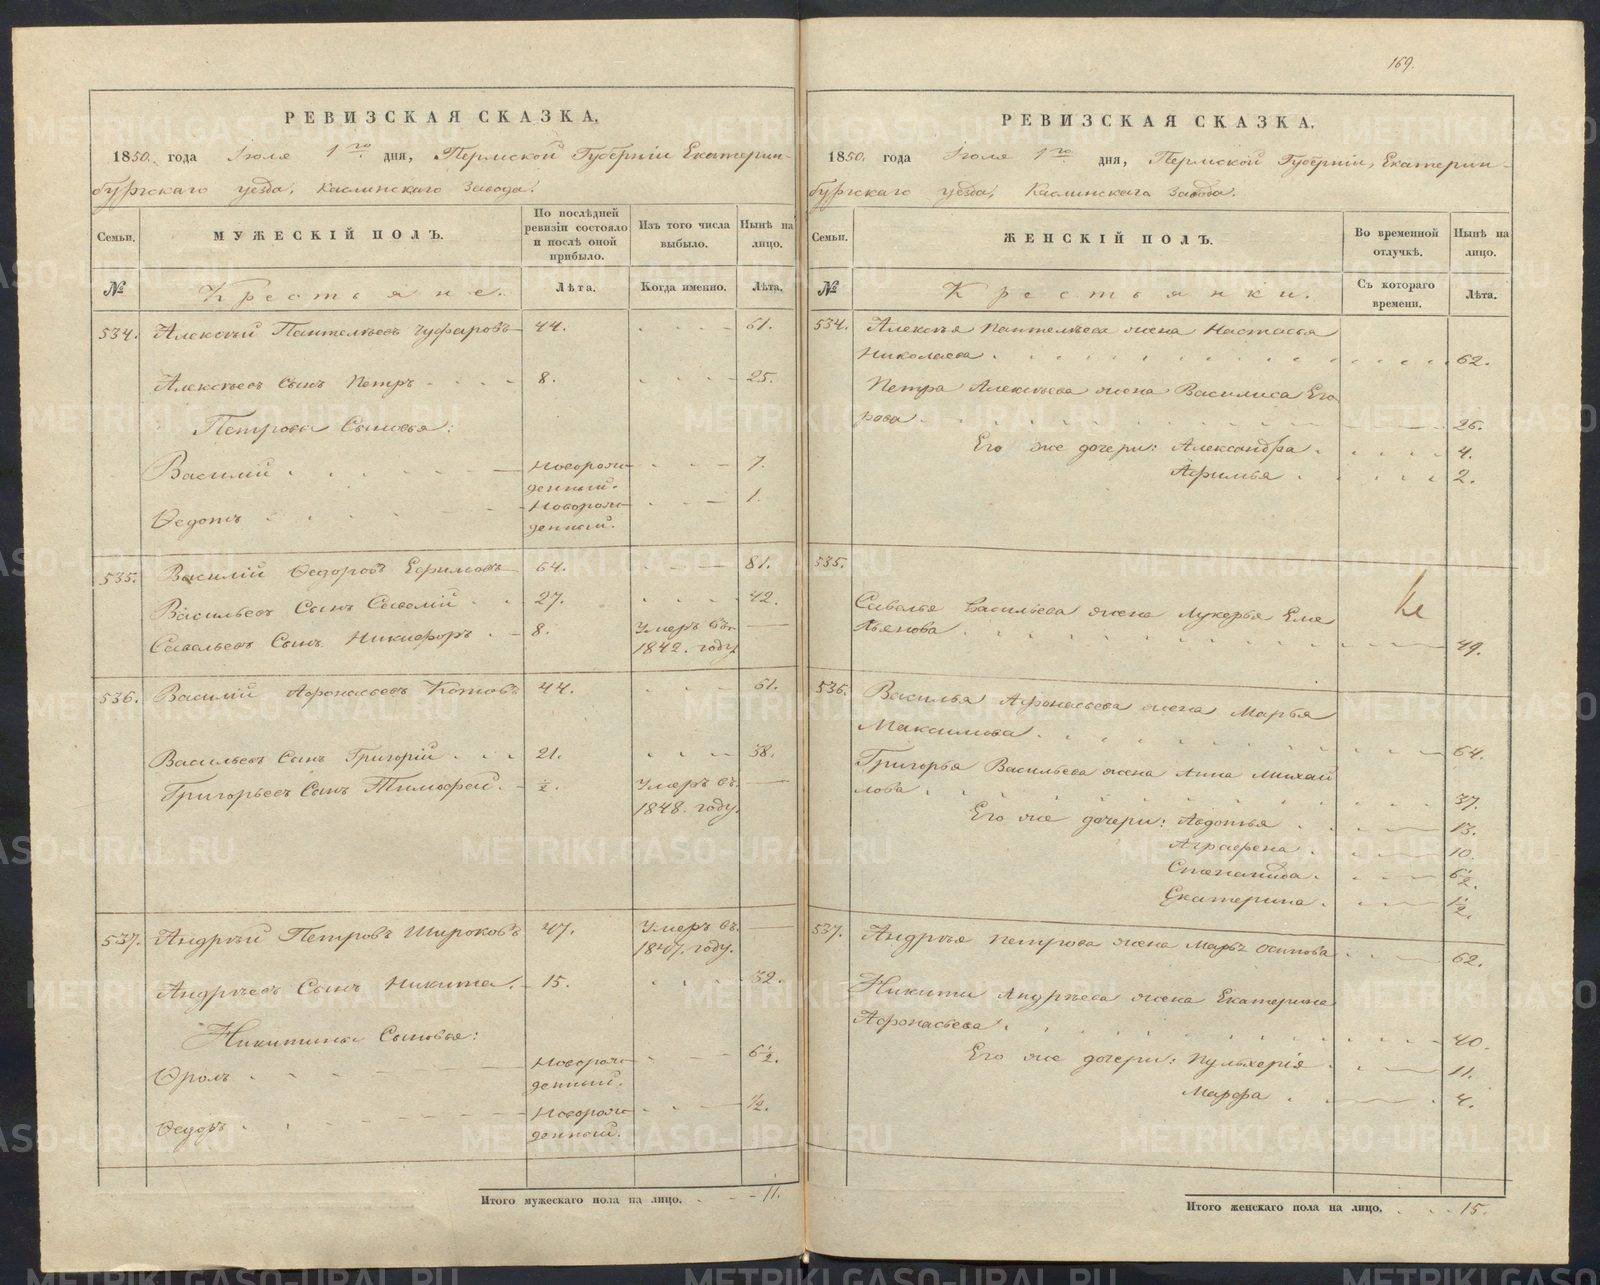 169.
РЕВИЗСКАЯ СКАЗКА.
1850. года Іюля 1го дня, Пермской Губерніи Екатерин-
бургскаго уезда, Каслинскаго Завода.
Семьи. МУЖЕСКІЙ ПОЛЪ. По послѣдней ревизіи состояло и послѣ оной прибыло. Изъ того числа выбыло. Нынѣ на лицо.
№ Крестьяне. Лѣта. Когда именно. Лѣта.
534. Алексѣй Пантелѣевъ Чуфаровъ 44. 61.
Алексѣевъ Сынъ Петръ 8. 25.
Петровы Сыновья:
Василій Новорож- 7.
денный.
Ѳедотъ Новорож- 1.
денный.
535. Василій Ѳедоровъ Ефимовъ 64. 81.
Васильевъ Сынъ Савелій 27. 42.
Савельевъ Сынъ Никифоръ 8. Умеръ въ
1842. году.
536. Василій Афонасьевъ Котовъ 44. 61.
Васильевъ Сынъ Григорій 21. 38.
Григорьевъ Сынъ Тимофей. ½. Умеръ въ
1848. году.
537. Андрѣй Петровъ Широковъ 47. Умеръ въ
1847. году.
Андрѣевъ Сынъ Никита. 15. 32.
Никитины Сыновья:
Ѳролъ Новорож- 6½.
денный.
Ѳедоръ Новорож- ½.
денный.
Итого мужескаго пола на лицо. 11.
РЕВИЗСКАЯ СКАЗКА.
1850. года Іюля 1го дня, Пермской Губерніи, Екатерин-
бургскаго уезда, Каслинскаго Завода.
Семьи. ЖЕНСКІЙ ПОЛЪ. Во временной отлучкѣ. Нынѣ на лицо.
№ Крестьянки. Съ котораго времени. Лѣта.
534. Алексѣя Пантелѣева жена Настасья
Николаева 62.
Петра Алексѣева жена Василиса Его
рова 26.
Его же дочери: Александра 4.
Афимья 2.
535.
Савелья Васильева жена Лукерья Еме
льянова 49.
536. Василья Афонасьева жена Марья
Максимова 64.
Григорья Васильева жена Анна Михай
лова 37.
Его же дочери: Авдотья 13.
Аграфена 10.
Степанида 6½.
Екатерина 1½.
537. Андрѣя Петрова жена Марья Осипова 62.
Никиты Андрѣева жена Екатерина
Афонасьева 40.
Его же дочери: Пульхерія 11.
Марфа 4.
Итого женскаго пола на лицо. 15.
METRIKI.GASO-URAL.RU